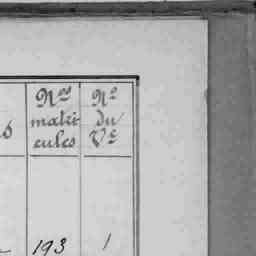 Nos
matri
cules
No
du
Vc
s
193
1